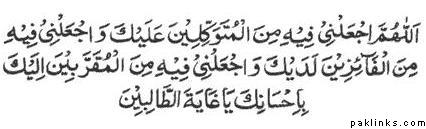 اَللّٰهُمَّ اجْعَلْنِيْ فِيْهِ مِنَ الْمُتَوَكِّلِيْنَ عَلَيْكَ وَ اجْعَلْنِيْ فِيْهِ
مِنَ الْفَآئِزِيْنَ لَدَيْكَ وَ اجْعَلْنِيْ فِيْهِ مِنَ الْمُقَرَّبِيْنَ اِلَيْكَ
بِاِحْسَانِكَ يَا غَايَةَ الطَّالِبِيْنَ
paklinks.com